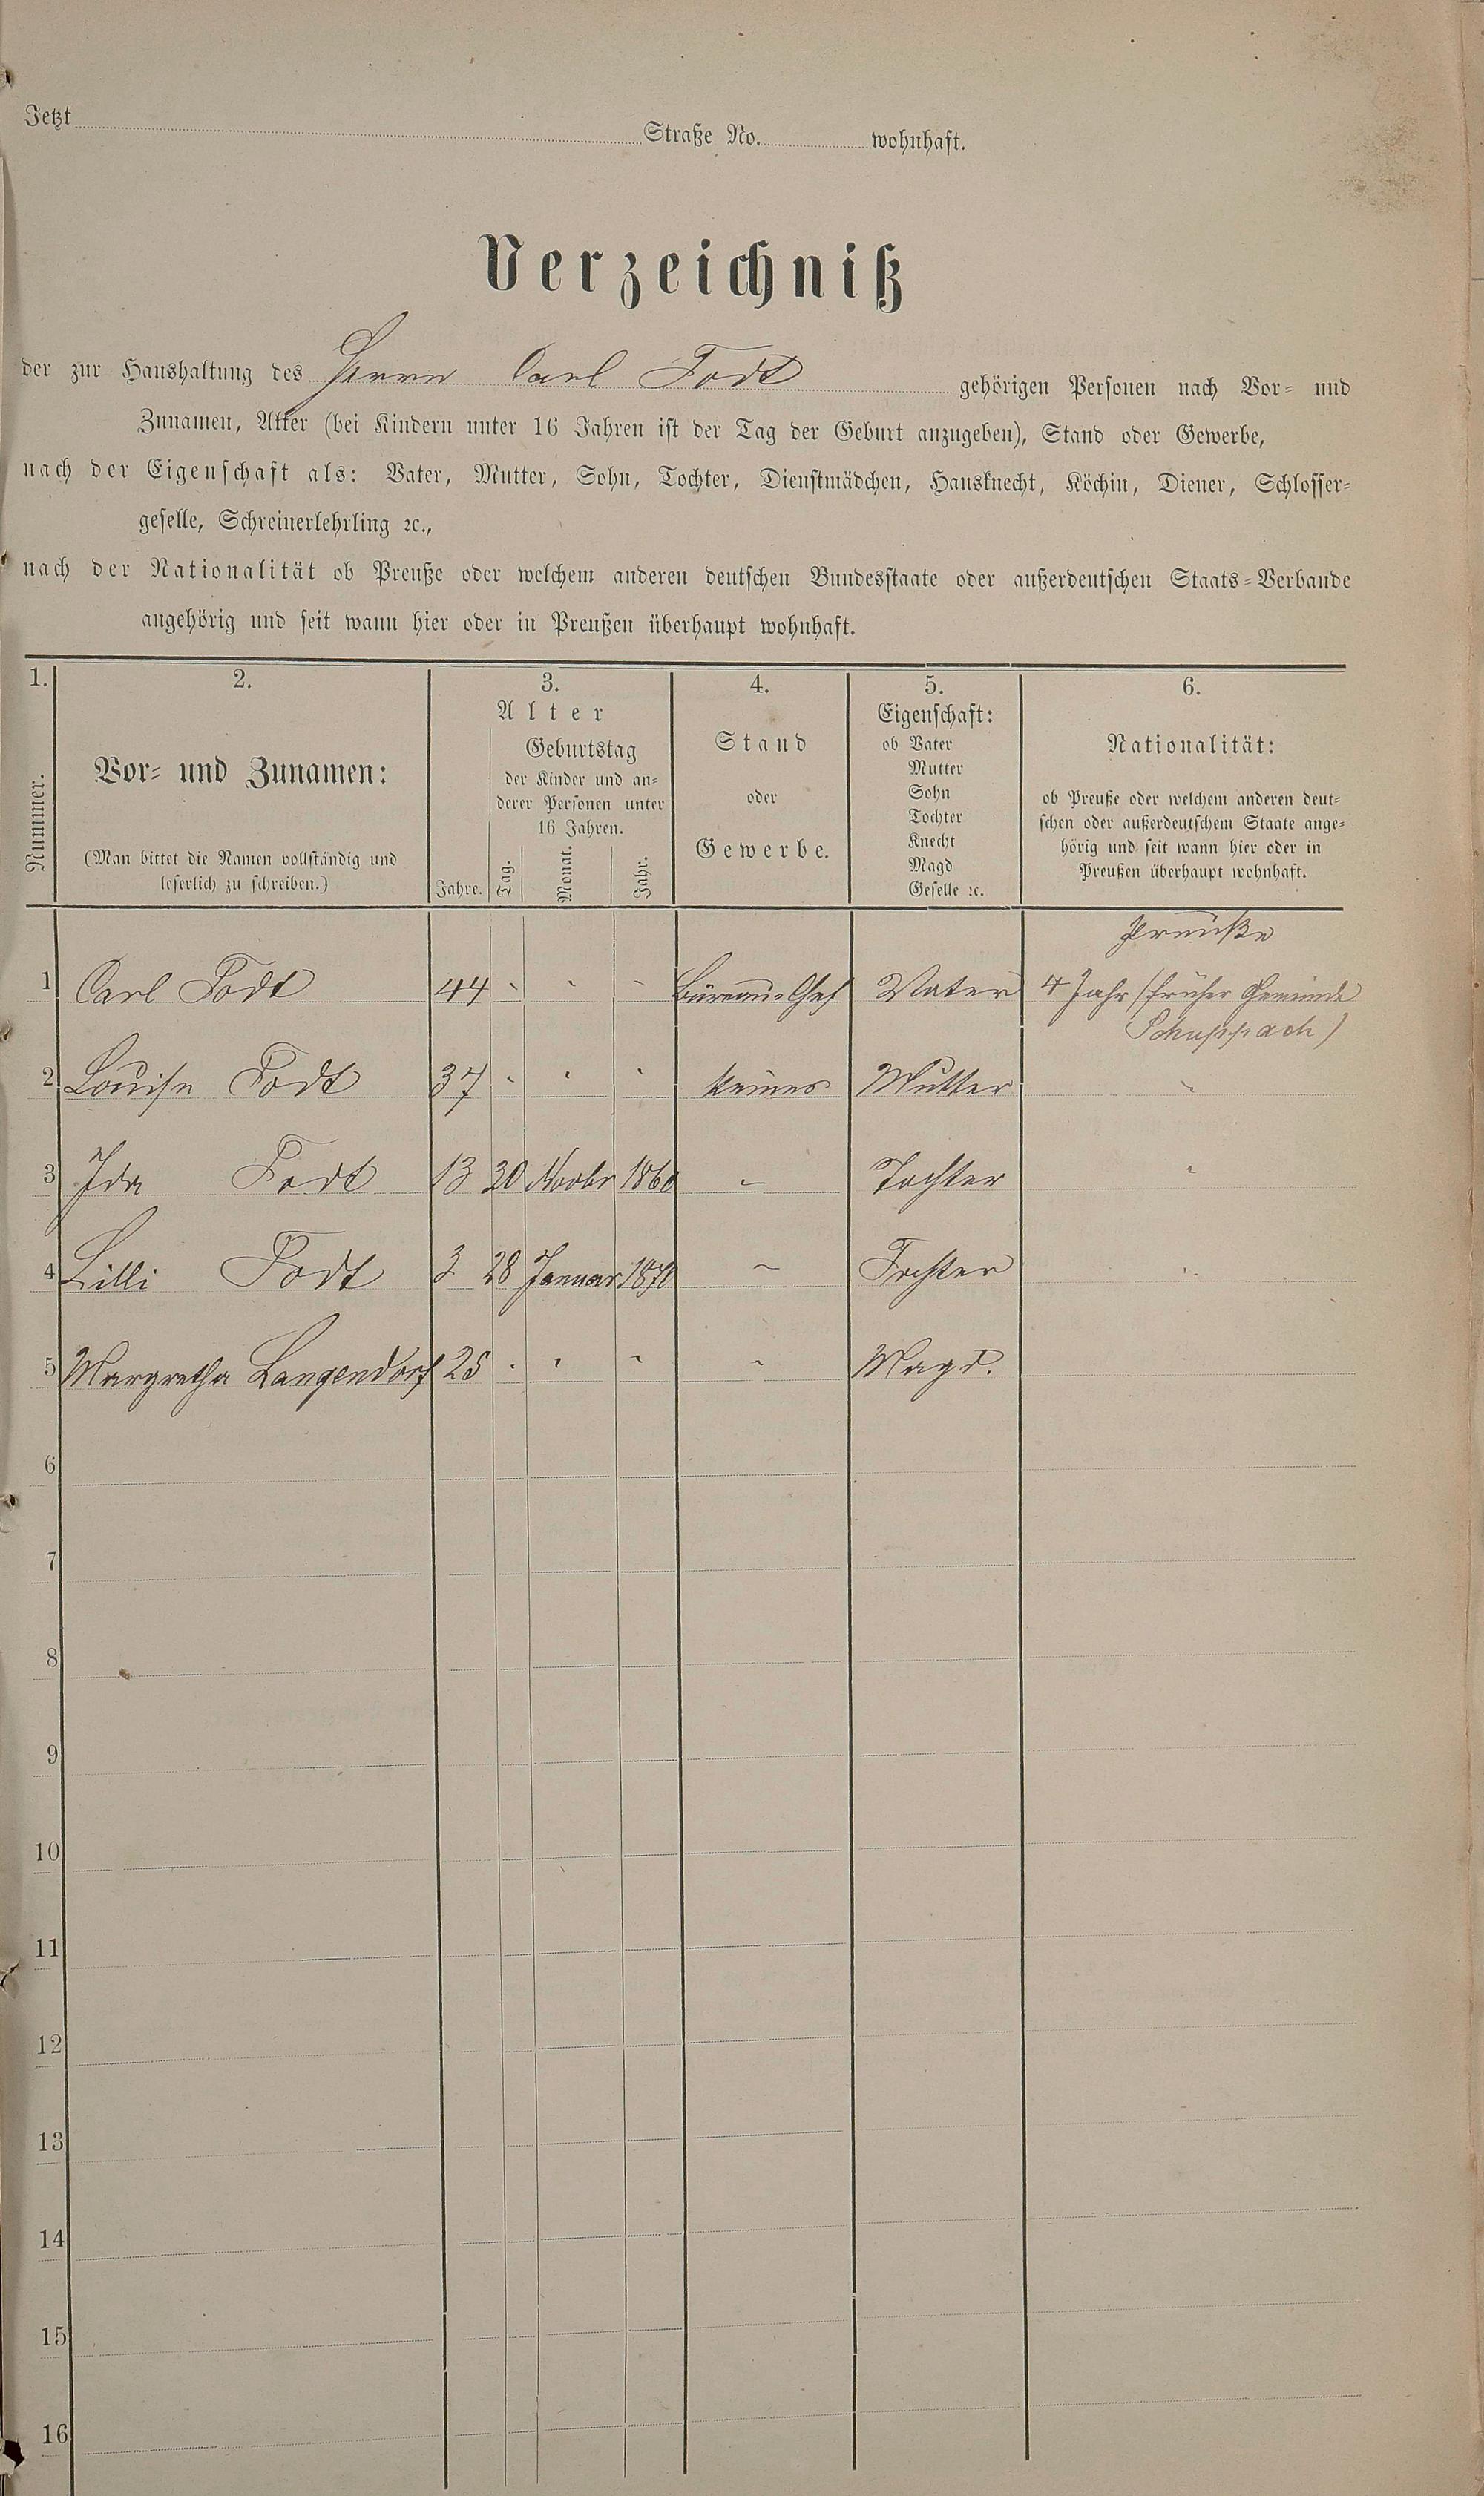 Jetzt Straße No. wohnhaft.
Verzeichniß
der zur Haushaltung des Herrn Carl Fodt gehörigen Personen nach Vor- und
Zunamen, Alter (bei Kindern unter 16 Jahren ist der Tag der Geburt anzugeben), Stand oder Gewerbe,
nach der Eigenschaft als: Vater, Mutter, Sohn, Tochter, Dienstmädchen, Hausknecht, Köchin, Diener, Schlosser-
geselle, Schreinerlehrling ꝛc.,
nach der Nationalität ob Preuße oder welchem anderen deutschen Bundesstaate oder außerdeutschen Staats-Verbande
angehörig und seit wann hier oder in Preußen überhaupt wohnhaft.
1. 2. 3. 4. 5. 6.
Nummer.
Vor- und Zunamen:
(Man bittet die Namen vollständig und
leserlich zu schreiben.)
Alter
Geburtstag
der Kinder und an-
derer Personen unter
16 Jahren.
Jahre. Tag. Monat. Jahr.
Stand
oder
Gewerbe.
Eigenschaft:
ob Vater
Mutter
Sohn
Tochter
Knecht
Magd
Geselle ꝛc.
Nationalität:
ob Preuße oder welchem anderen deut-
schen oder außerdeutschem Staate ange-
hörig und seit wann hier oder in
Preußen überhaupt wohnhaft.
Preuße
1 Carl Fodt 44 - - - Büreau-Chef Vater 4 Jahr (früher Gemeinde
Schuppach)
2 Louise Fodt 37 - - - keines Mutter "
3 Ida Fodt 13 30 Novbr 1860 - Tochter "
4 Lilli Fodt 3 28 Januar 1871 - Tochter "
5 Margretha Langendorf 25 - - - - Magd.
6
7
8
9
10
11
12
13
14
15
16